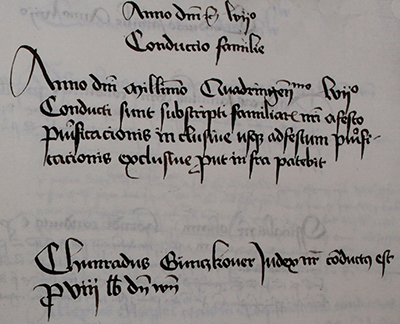 Anno dm̄ &c lvijo
Conductio familie
Anno dm̄ Millīmo Quadringen̄mo lvijo
Conducti sunt subscripti familiares nr̄i a festo
Purificacionis inclusive usq, ad festum purifi-
cacionis exclusive put infra patebit
Chunradus Judex nr̄ coductus est
p viii lb dn̄ wn̄